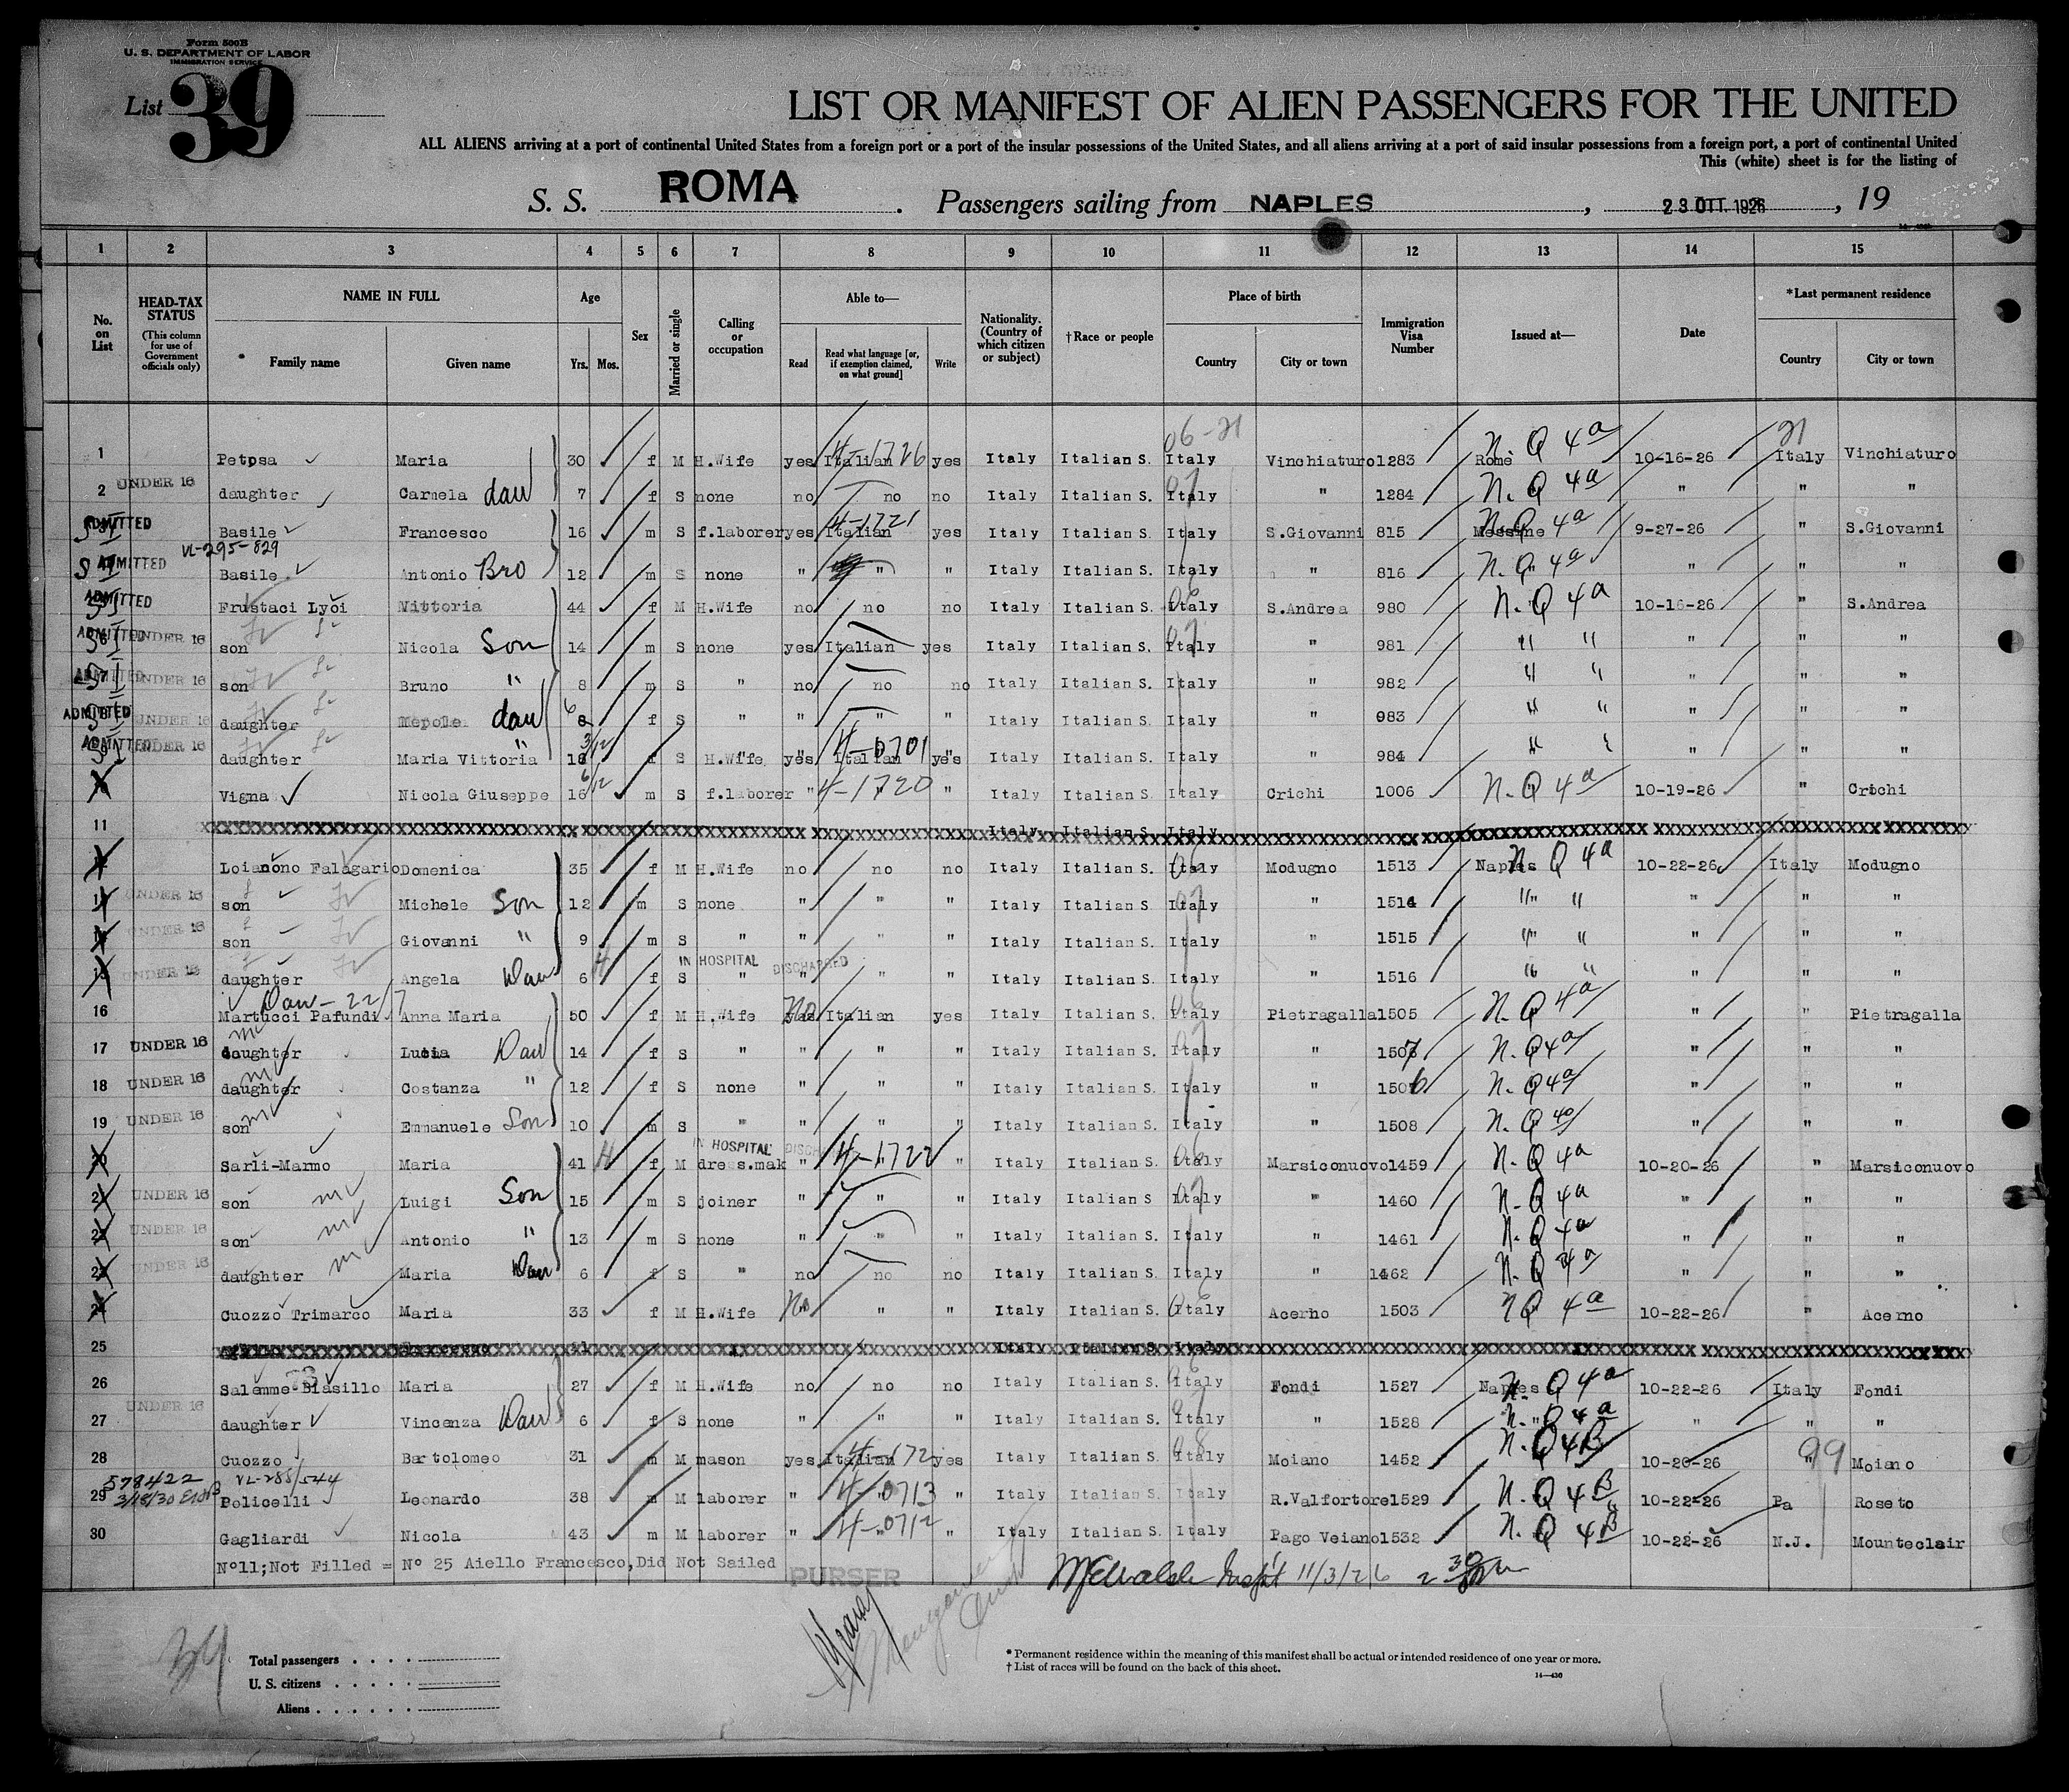 Form 500B
U. S. DEPARTMENT OF LABOR
IMMIGRATION SERVICE
List 39
LIST OR MANIFEST OF ALIEN PASSENGERS FOR THE UNITED
ALL ALIENS arriving at a port of continental United States from a foreign port or a port of the insular possessions of the United States, and all aliens arriving at a port of said insular possessions from a foreign port, a port of continental United
This (white) sheet is for the listing of
S. S. ROMA. Passengers sailing from NAPLES, 23 OTT. 1926, 19
1 2 3 4 5 6 7 8 9 10 11 12 13 14 15
No. on List
HEAD-TAX STATUS (This column for use of Government officials only)
NAME IN FULL Family name Given name
Age Yrs. Mos.
Sex
Married or single
Calling or occupation
Able to— Read Read what language [or, if exemption claimed, on what ground] Write
Nationality. (Country of which citizen or subject)
†Race or people
Place of birth Country City or town
Immigration Visa Number
Issued at—
Date
*Last permanent residence Country City or town
06-21 21
1 Petosa Maria 30 f M H.Wife yes Italian 4-1726 yes Italy Italian S. Italy Vinchiaturo 1283 Rome N.Q 4a 10-16-26 Italy Vinchiaturo
2 UNDER 16 daughter Carmela dau 7 f S none no no no Italy Italian S. Italy " 1284 N.Q 4a " " "
ADMITTED Basile Francesco 16 m S f.laborer yes Italian 4-1721 yes Italy Italian S. Italy S.Giovanni 815 Messine N.Q 4a 9-27-26 " S.Giovanni
VL-295-829
ADMITTED Basile Antonio Bro 12 m S none " " " Italy Italian S. Italy " 816 " N.Q 4a " " "
ADMITTED Frustaci Lyoi Vittoria 44 f M H.Wife no no no Italy Italian S. Italy S.Andrea 980 N.Q 4a 10-16-26 " S.Andrea
ADMITTED UNDER 16 son Nicola Son 14 m S none yes Italian yes Italy Italian S. Italy " 981 " " " " "
ADMITTED UNDER 16 son Bruno " 8 m S " no no no Italy Italian S. Italy " 982 " " " " "
ADMITTED UNDER 16 daughter dau 6 f S " " " " Italy Italian S. Italy " 983 " " " " "
ADMITTED UNDER 16 daughter Maria Vittoria " 18 f S H.Wife yes Italian 4-0701 yes Italy Italian S. Italy " 984 " " " " "
Vigna Nicola Giuseppe 16 m S f.laborer " 4-1720 " Italy Italian S. Italy Crichi 1006 N.Q 4a 10-19-26 " Crichi
11 Italy Italian S. Italy
12 Loianono Falagario Domenica 35 f M H.Wife no no no Italy Italian S. Italy Modugno 1513 Naples N.Q 4a 10-22-26 Italy Modugno
13 UNDER 16 son Michele Son 12 m S none " " " Italy Italian S Italy " 1514 " " " " "
14 UNDER 16 son Giovanni " 9 m S " " " " Italy Italian S. Italy " 1515 " " " " "
IN HOSPITAL DISCHARGED
15 UNDER 16 daughter Angela Dau 6 f S " " " " Italy Italian S. Italy " 1516 " " " " "
Dau - 22/7
16 Martucci Pafundi Anna Maria 50 f M H.Wife No Italian yes Italy Italian S. Italy Pietragalla 1505 N.Q 4a " " Pietragalla
17 UNDER 16 daughter Lucia Dau 14 f S " " " " Italy Italian S. Italy " 1507 N.Q 4a " " "
18 UNDER 16 daughter Costanza " 12 f S none " " " Italy Italian S. Italy " 1506 N.Q 4a " " "
19 UNDER 16 son Emmanuele Son 10 m S " " " " Italy Italian S. Italy " 1508 N.Q 4a " " "
IN HOSPITAL
20 Sarli-Marmo Maria 41 f M dress.mak " 4-1722 " Italy Italian S. Italy Marsiconuovo 1459 N.Q 4a 10-20-26 " Marsiconuovo
21 UNDER 16 son Luigi Son 15 m S joiner " " " Italy Italian S Italy " 1460 N.Q 4a " " "
22 UNDER 16 son Antonio " 13 m S none " " " Italy Italian S. Italy " 1461 N.Q 4a " " "
23 UNDER 16 daughter Maria Dau 6 f S " no no no Italy Italian S. Italy " 1462 N.Q 4a " " "
24 Cuozzo Trimarco Maria 33 f M H.Wife No " " Italy Italian S. Italy Acerno 1503 N.Q 4a 10-22-26 " Acerno
25 Italy Italian S. Italy
26 Salemme Biasillo Maria 27 f M H.Wife no no no Italy Italian S. Italy Fondi 1527 Naples N.Q 4a 10-22-26 Italy Fondi
27 UNDER 16 daughter Vincenza Dau 6 f S none " " " Italy Italian S. Italy " 1528 " N.Q 4a " " "
28 Cuozzo Bartolomeo 31 m M mason yes Italian yes Italy Italian S. Italy Moiano 1452 N.Q 4B 10-20-26 " 99 Moiano
578422 VL-288/544
3/18/30
29 Policelli Leonardo 38 m M laborer " 4-0713 " Italy Italian S. Italy R.Valfortore 1529 N.Q 4B 10-22-26 Pa Roseto
30 Gagliardi Nicola 43 m M laborer " 4-0712 " Italy Italian S. Italy Pago Veiano 1532 N.Q 4B 10-22-26 N.J. Mounteclair
Nº11;Not Filled = Nº 25 Aiello Francesco,Did Not Sailed PURSER
11/3/26 2 30 pm
Total passengers
U. S. citizens
Aliens
* Permanent residence within the meaning of this manifest shall be actual or intended residence of one year or more.
† List of races will be found on the back of this sheet.
14—430